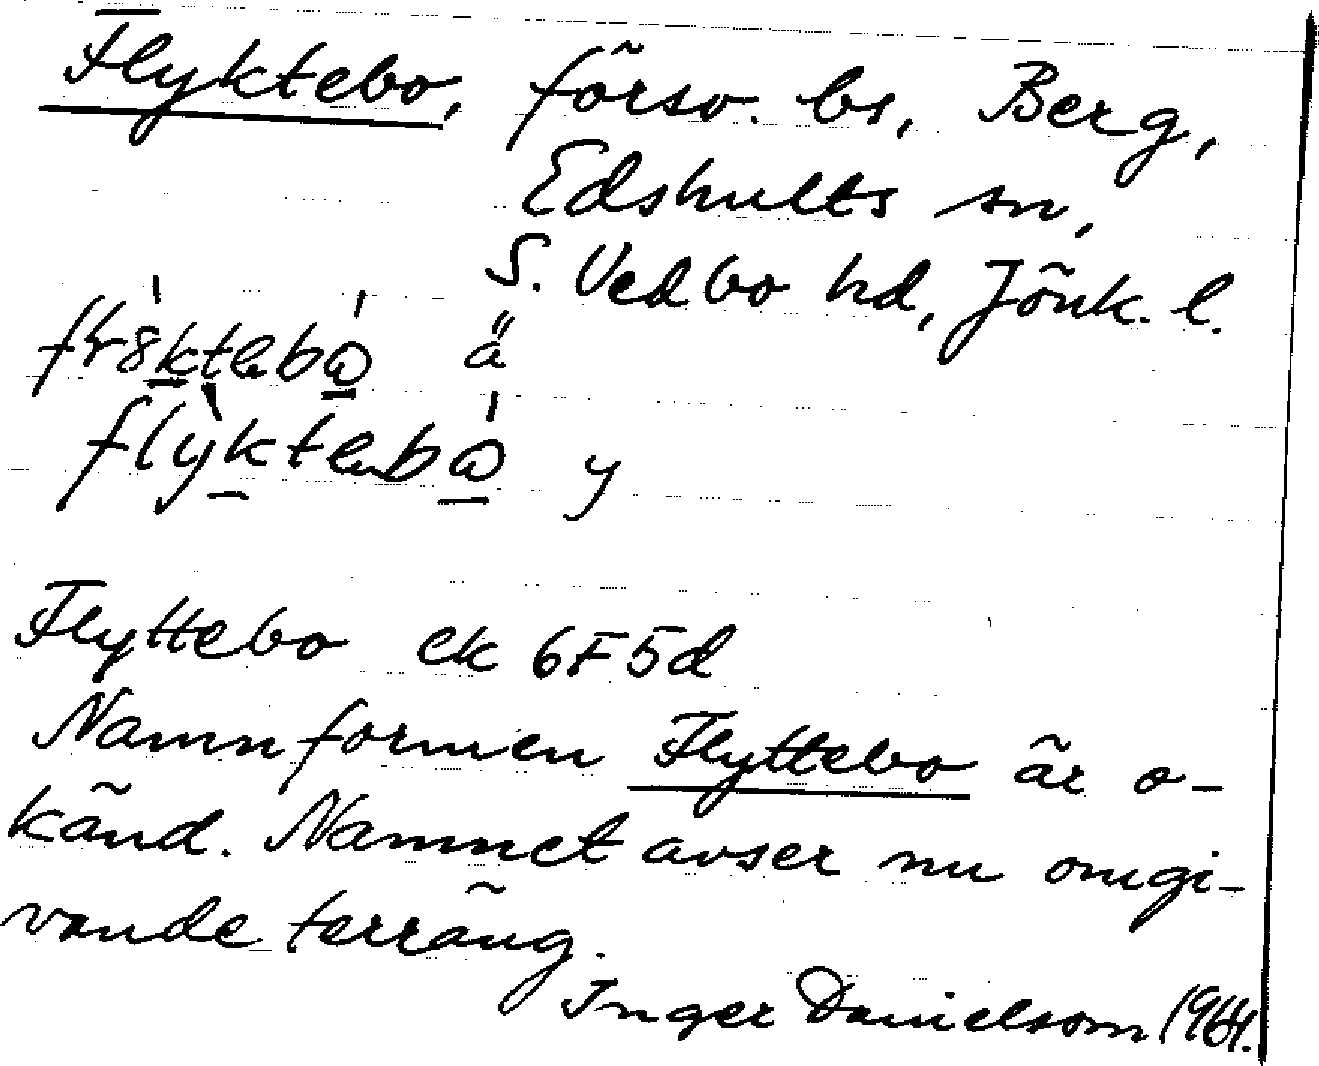 Flyktebo, försv. bs, Berg,
Edshults sn,
S. Vedbo hd, Jönk. l.
ä
y
Flyttebo ek 6F5d
Namnformen Flyttebo är o-
känd. Namnet avser nu omgi-
vande terräng.
Inger Danielsson 1964.